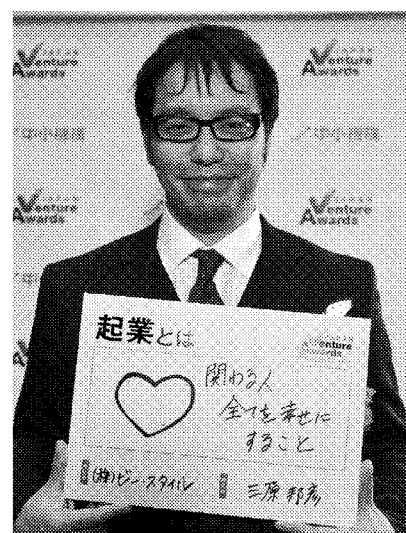 JAPAN
Venture
Awards
JAPAN
Venture
Awards
中小機構
中小機構
JAPAN
Venture
Awards
JAPAN
Venture
Awards
起業とは
JAPAN
Venture
Awards
関わる人
全てを幸せに
すること
(株)ビー・スタイル
三原邦彦